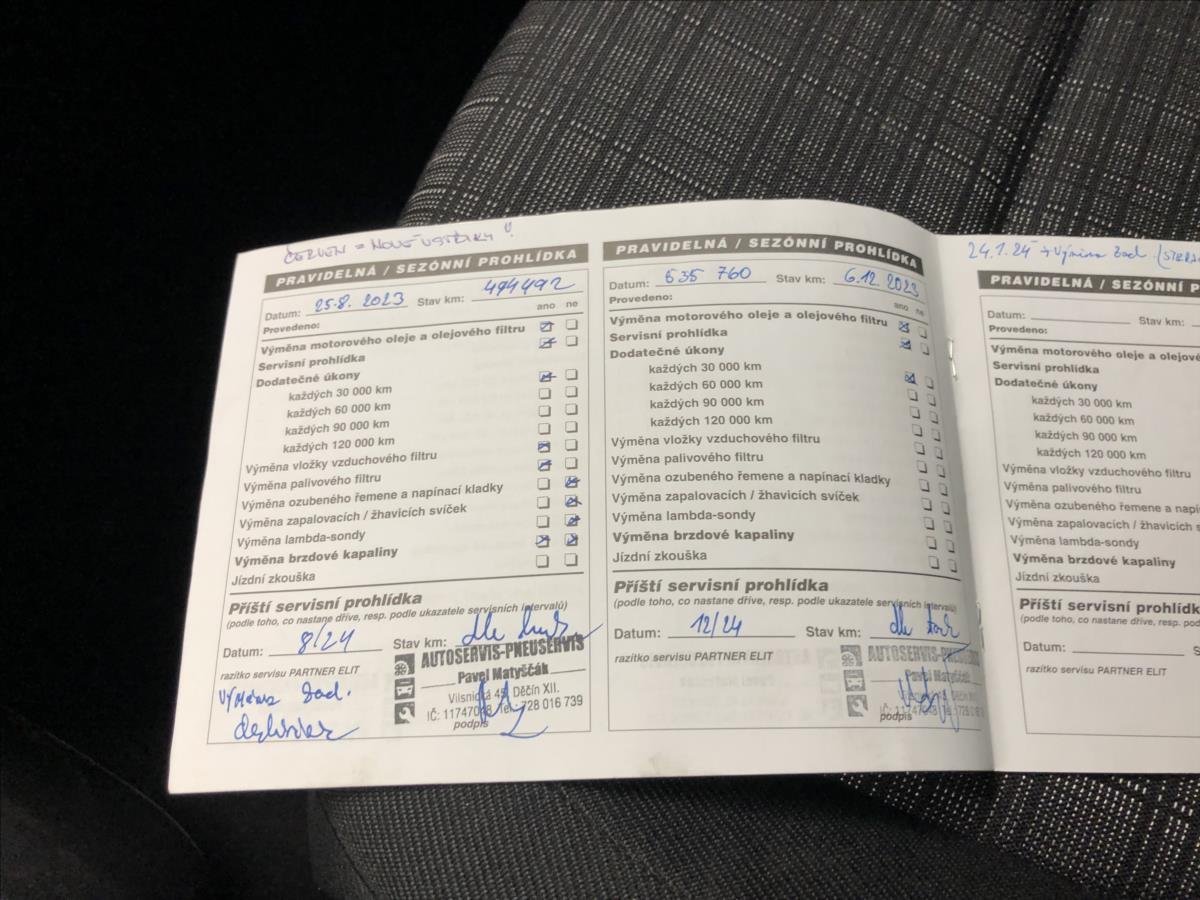 ČERVEN = NOVÉ VSTŘIKY !
PRAVIDELNÁ / SEZÓNNÍ PROHLÍDKA
Datum: 25.8. 2023 Stav km: 494492
Provedeno: ano ne
Výměna motorového oleje a olejového filtru
Servisní prohlídka
Dodatečné úkony
každých 30 000 km
každých 60 000 km
každých 90 000 km
každých 120 000 km
Výměna vložky vzduchového filtru
Výměna palivového filtru
Výměna ozubeného řemene a napínací kladky
Výměna zapalovacích / žhavicích svíček
Výměna lambda-sondy
Výměna brzdové kapaliny
Jízdní zkouška
Příští servisní prohlídka
(podle toho, co nastane dříve, resp. podle ukazatele servisních intervalů)
Datum: 8/24 Stav km: dle
razítko servisu PARTNER ELIT
AUTOSERVIS-PNEUSERVIS
Pavel Matyščák
Vilsnická 45, Děčín XII.
Tel.: 728 016 739
podpis
Výměna zad.
PRAVIDELNÁ / SEZÓNNÍ PROHLÍDKA
Datum: 635 760 Stav km: 6.12. 2023
Provedeno: ano ne
Výměna motorového oleje a olejového filtru
Servisní prohlídka
Dodatečné úkony
každých 30 000 km
každých 60 000 km
každých 90 000 km
každých 120 000 km
Výměna vložky vzduchového filtru
Výměna palivového filtru
Výměna ozubeného řemene a napínací kladky
Výměna zapalovacích / žhavicích svíček
Výměna lambda-sondy
Výměna brzdové kapaliny
Jízdní zkouška
Příští servisní prohlídka
(podle toho, co nastane dříve, resp. podle ukazatele servisních intervalů)
Datum: 12/24 Stav km: dle
razítko servisu PARTNER ELIT
AUTOSERVIS-PNEUSERVIS
Pavel Matyščák
podpis
24.1.24 + Výměna zad.
PRAVIDELNÁ / SEZÓNNÍ P
Datum: Stav km:
Provedeno:
Výměna motorového oleje a olejové
Servisní prohlídka
Dodatečné úkony
každých 30 000 km
každých 60 000 km
každých 90 000 km
každých 120 000 km
Výměna vložky vzduchového filtru
Výměna palivového filtru
Výměna ozubeného řemene a napí
Výměna zapalovacích / žhavicích s
Výměna lambda-sondy
Výměna brzdové kapaliny
Jízdní zkouška
Příští servisní prohlídk
(podle toho, co nastane dříve, resp. pod
Datum: S
razítko servisu PARTNER ELIT